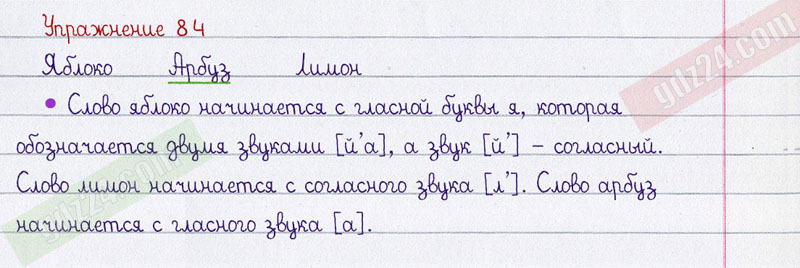 Упражнение 84
Яблоко Арбуз Лимон
• Слово яблоко начинается с гласной буквы я, которая
обозначается двумя звуками [й'а], а звук [й'] – согласный.
Слово лимон начинается с согласного звука [л']. Слово арбуз
начинается с гласного звука [а].
gdz24.com
gdz24.com